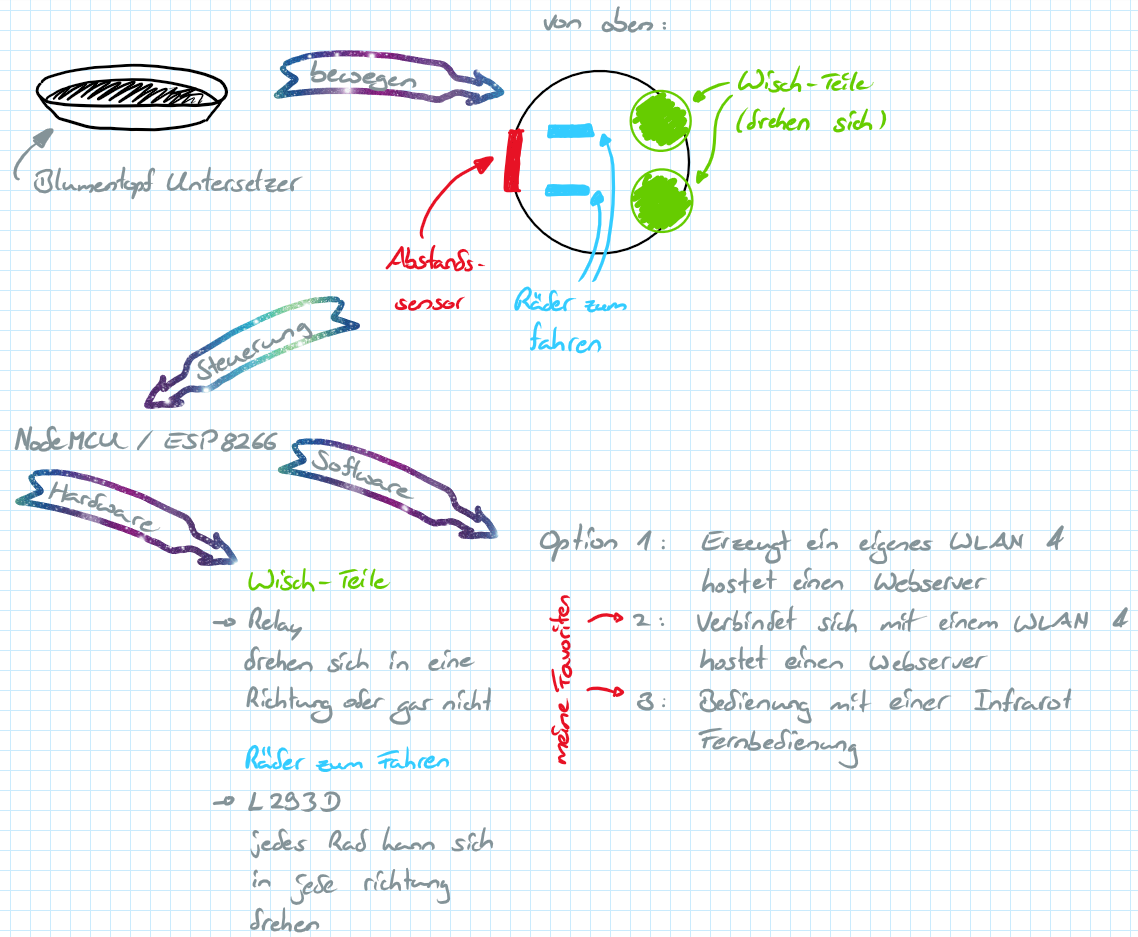 von oben:
bewegen
Wisch-Teile
(drehen sich)
Blumentopf Untersetzer
Abstands-
sensor
Räder zum
fahren
Steuerung
NodeMCU / ESP8266
Hardware
Software
Wisch-Teile
→ Relay
drehen sich in eine
Richtung oder gar nicht
Räder zum Fahren
→ L293D
jedes Rad kann sich
in jede richtung
drehen
Option 1: Erzeugt ein eigenes WLAN &
hostet einen Webserver
2: Verbindet sich mit einem WLAN &
hostet einen Webserver
3: Bedienung mit einer Infrarot
Fernbedienung
meine Favoriten